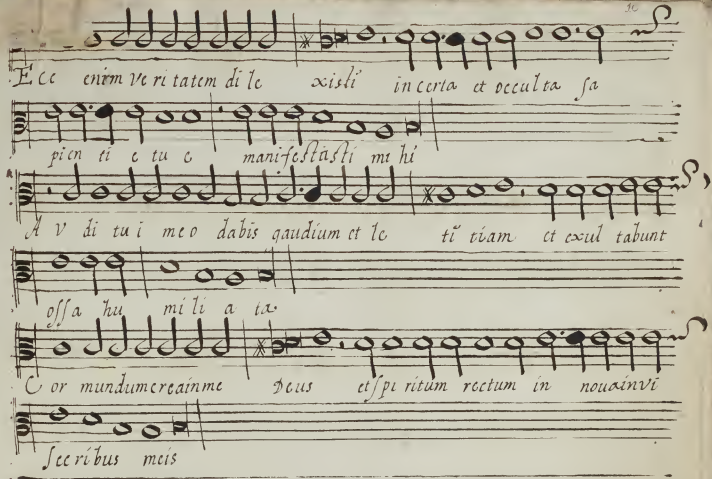 Ecc enim ve ri tatem di le xisti in certa et occul ta sa
pien ti e tu e manifestasti mi hi
A V di tu i meo dabis gaudium et le ti tiam et exul tabunt
ossa hu mi li a ta
C or mundum crea in me Deus et spi ritum rectum in nova in vi
scc ri bus meis